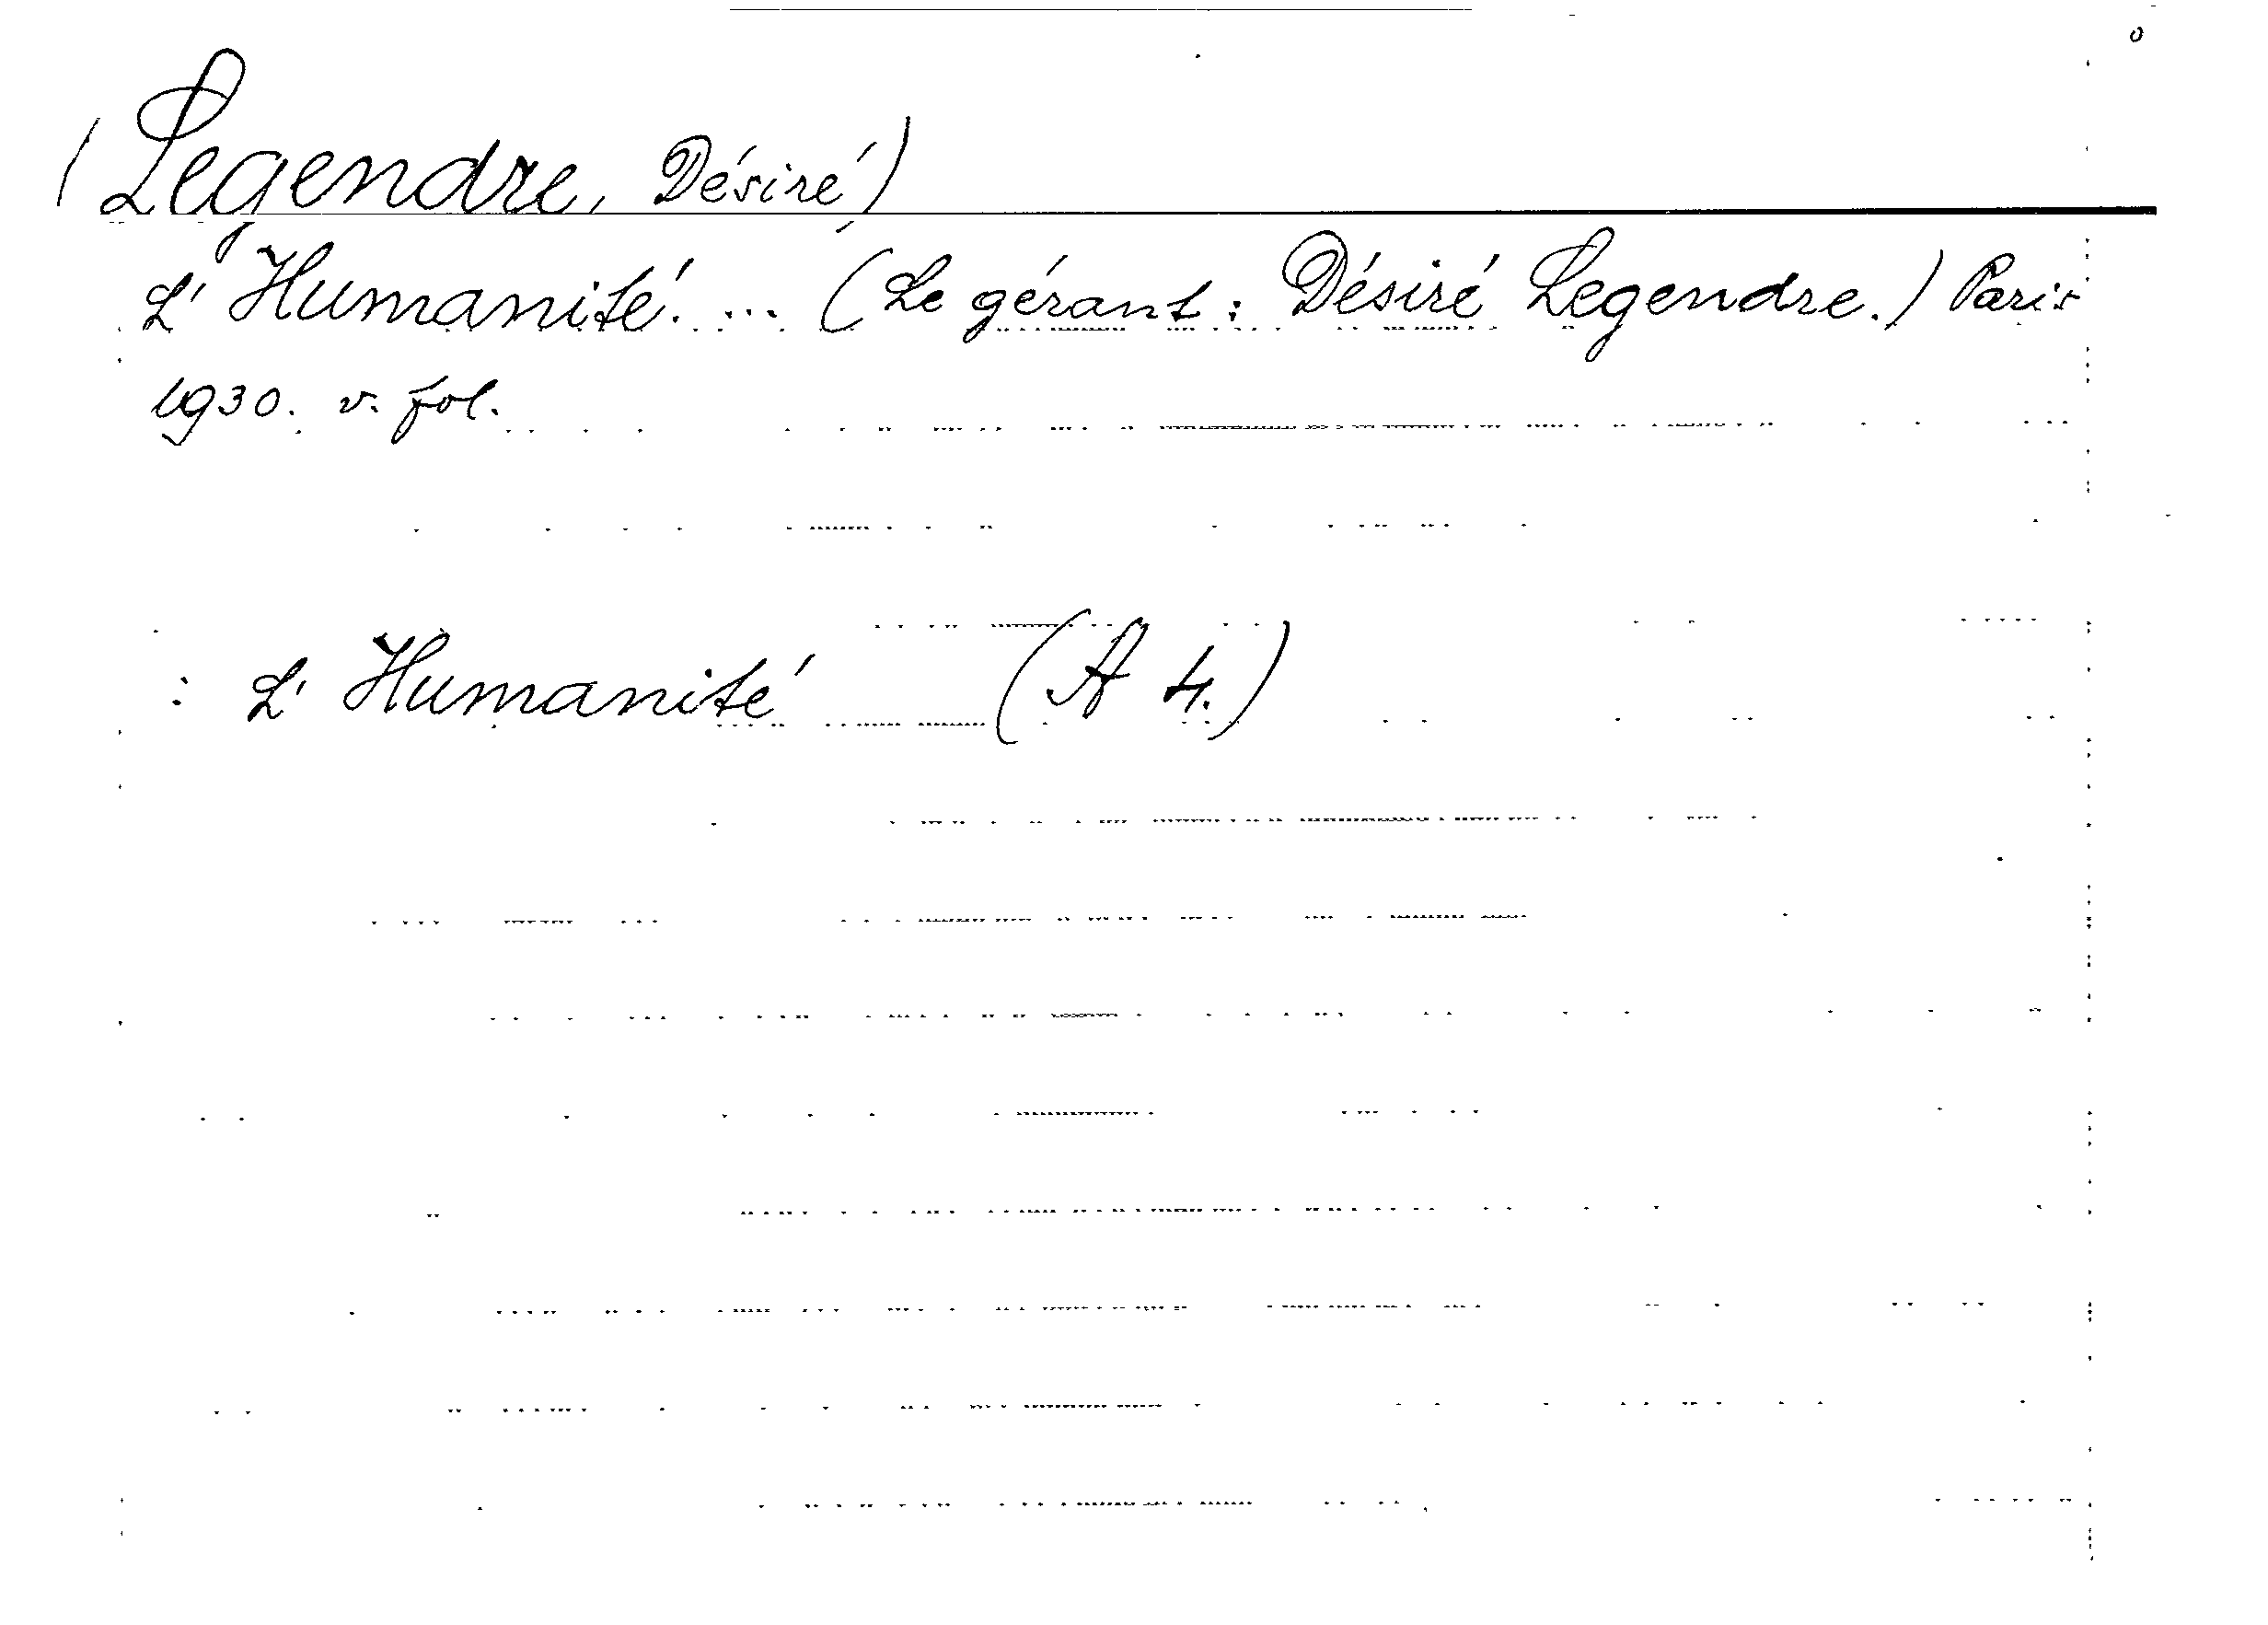 (Legendre, Désiré)
L'Humanité. ... (Le gérant: Désiré Legendre.) Paris
1930. v. fol.
: L'Humanité (A 4.)